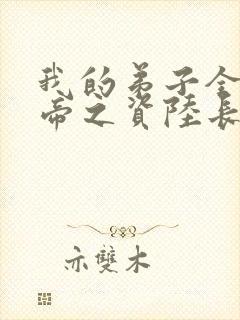 我的弟子全
帝之資陸長
亦雙木